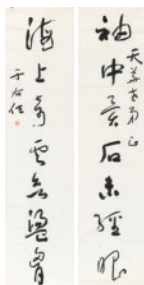 袖中異石未經眼
老弟正
海上奇雲欲盪胷
于右任